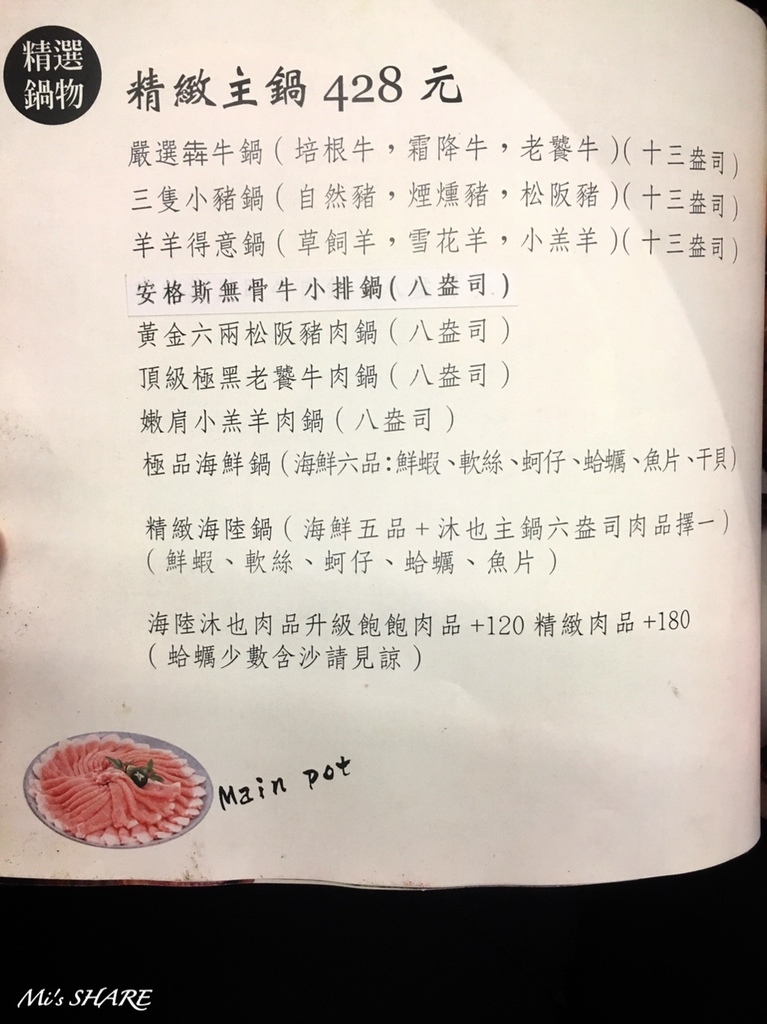 精選
鍋物
精緻主鍋 428 元
嚴選犇牛鍋（培根牛，霜降牛，老饕牛）（十三盎司）
三隻小豬鍋（自然豬，煙燻豬，松阪豬）（十三盎司）
羊羊得意鍋（草飼羊，雪花羊，小羔羊）（十三盎司）
安格斯無骨牛小排鍋(八盎司)
黃金六兩松阪豬肉鍋（八盎司）
頂級極黑老饕牛肉鍋（八盎司）
嫩肩小羔羊肉鍋（八盎司）
極品海鮮鍋（海鮮六品：鮮蝦、軟絲、蚵仔、蛤蠣、魚片、干貝）
精緻海陸鍋（海鮮五品＋沐也主鍋六盎司肉品擇一）
（鮮蝦、軟絲、蚵仔、蛤蠣、魚片）
海陸沐也肉品升級飽飽肉品 +120 精緻肉品 +180
（蛤蠣少數含沙請見諒）
Main pot
Mi's SHARE